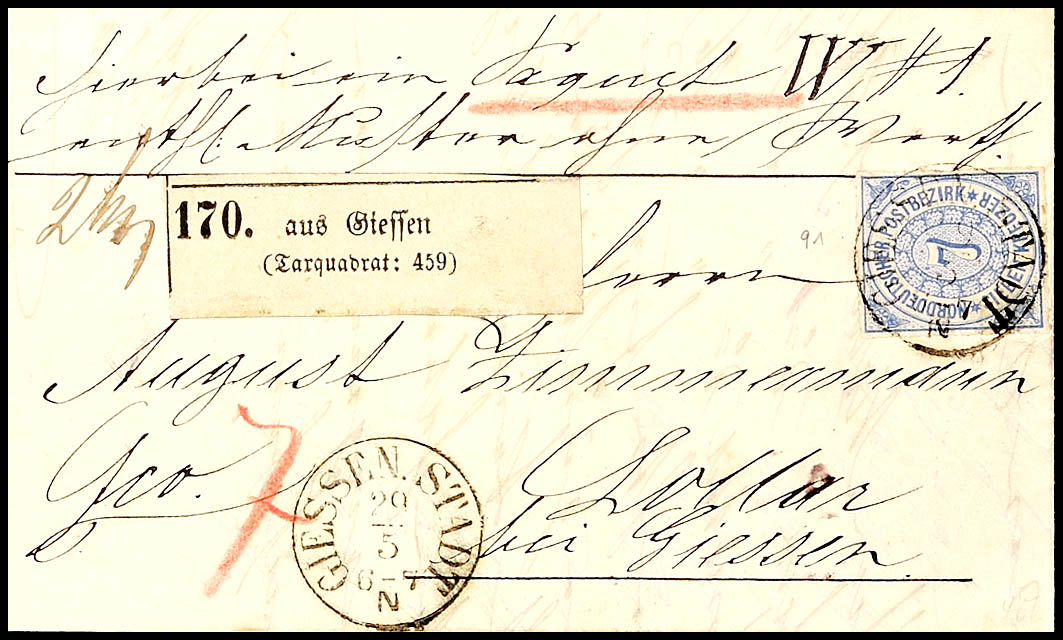 Hierbei ein Paquet W # 1.
enth. Muster ohne Werth.
170. aus Giessen
(Tarquadrat: 459)
91
NORDDEUTSCHER POSTBEZIRK * KREUZER *
7
Herrn
August Zimmermann
fco. 7
Lollar
bei Giessen.
GIESSEN. STADT
29
5
6-7
N